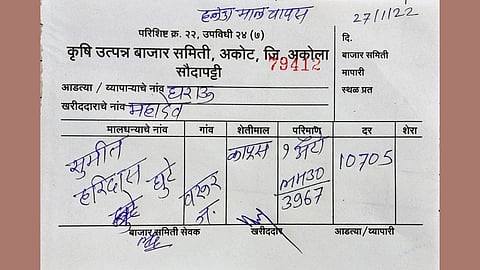 माल वापस
27/1/22
परिशिष्ट क्र. २२, उपविधी २४ (७)
दि.
कृषि उत्पन्न बाजार समिती, अकोट, जि. अकोला
बाजार समिती
सौदापट्टी
79412
मापारी
आडत्या / व्यापाऱ्याचे नांव
स्थळ प्रत
खरीददाराचे नांव महादेव
मालधन्याचे नांव गांव शेतीमाल परिमाण दर शेरा
सुमीत कापूस १ अॅटो 10705
हरिदास घुटे वरूर MH30
3967
बाजार समिती सेवक खरीददार आडत्या/व्यापारी